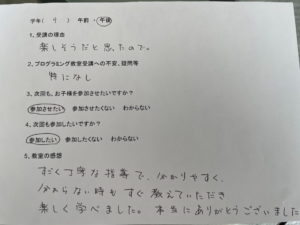 学年( 4 ) 午前・午後
1、受講の理由
楽しそうだと思ったので。
2、プログラミング教室受講への不安、疑問等
特になし
3、次回も、お子様を参加させたいですか?
参加させたい 参加させたくない わからない
4、次回も参加したいですか?
参加したい 参加したくない わからない
5、教室の感想
すごく丁寧な指導で、分かりやすく、
分からない時もすぐ教えていただき
楽しく学べました。本当にありがとうございました